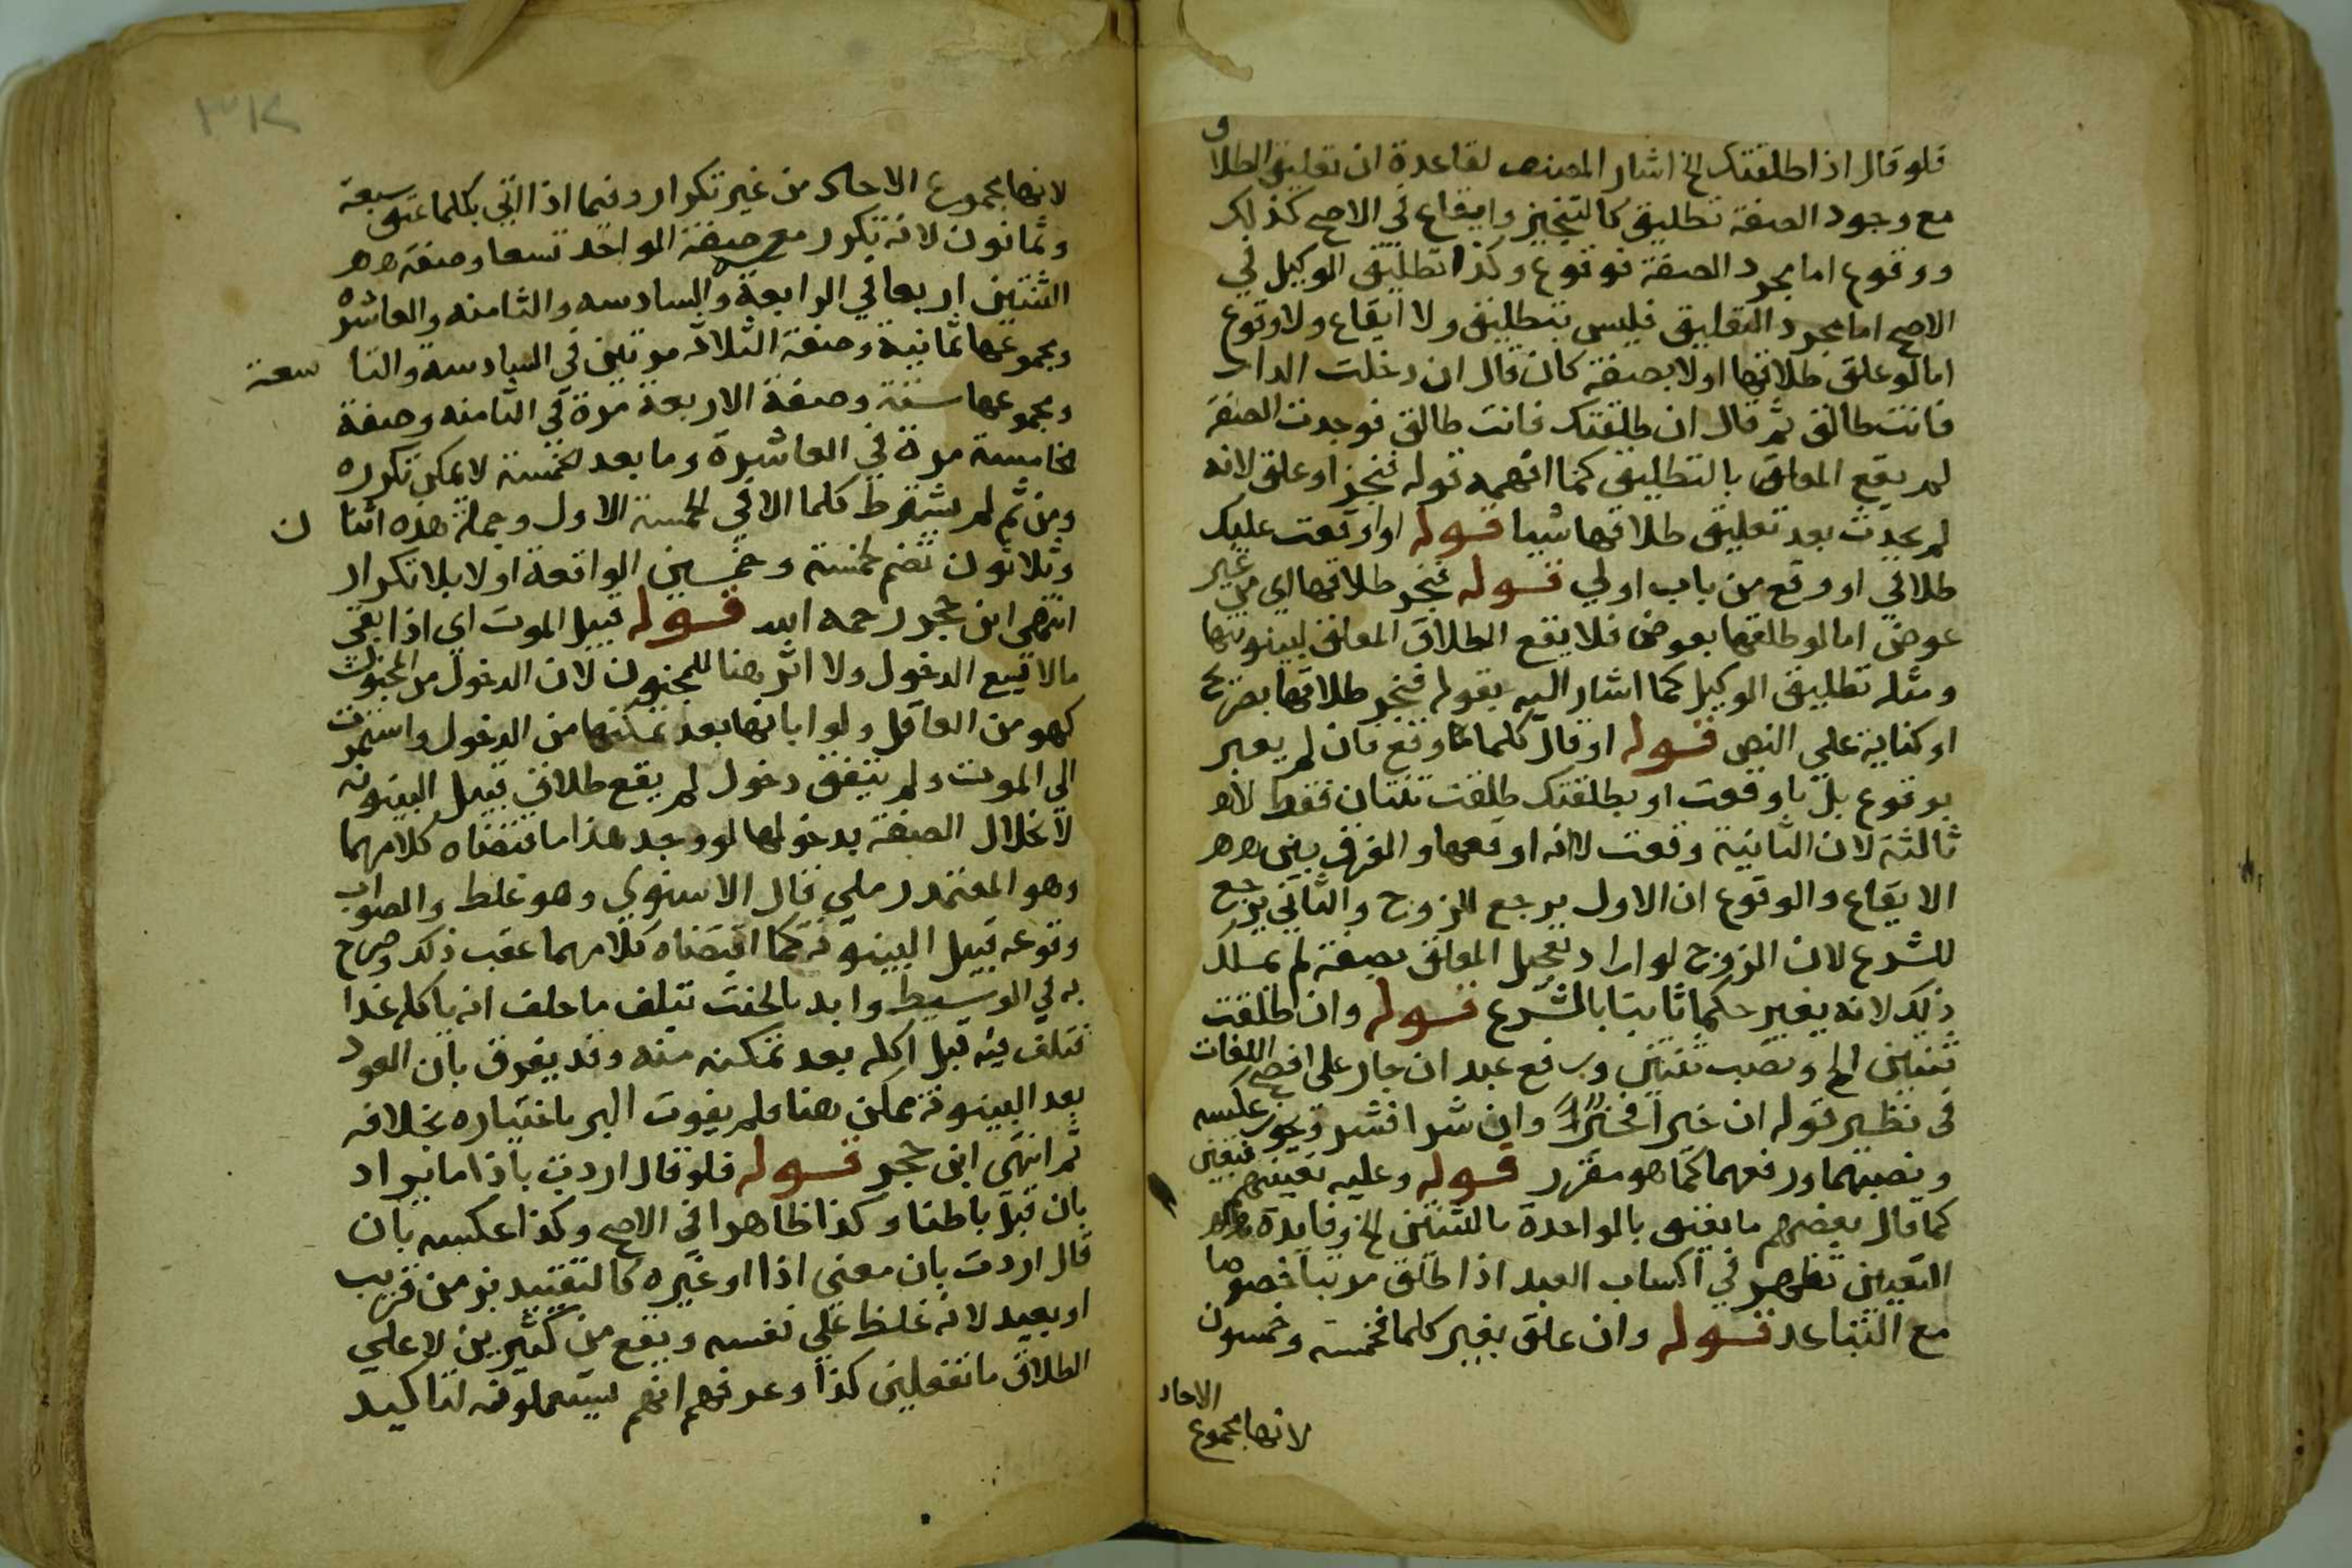 فلو قال اذا طلقتك الخ اشار المصنف لقاعدة ان تعليق الطلاق
مع وجود الصفة تطليق كالتنجيز وايقاع في الاصح كذلك
ووقوع اما مجرد الصفة فوقوع وكذا تطليق الوكيل في
الاصح اما مجرد التعليق فليس بتطليق ولا ايقاع ولا وقوع
اما لو علق طلاقها اولا بصفة كان قال ان دخلت الدار
فانت طالق ثم قال ان طلقتك فانت طالق فوجدت الصفة
لم يقع المعلق بالتطليق كما افهمه قوله فنجز او علق لانه
لم يحدث بعد تعليق طلاقها شيا قوله او اوقعت عليك
طلاقي او وقع من باب اولي قوله فنجز طلاقها اي من غير
عوض اما لو طلقها بعوض فلا يقع الطلاق المعلق لبينونتها
ومثله تطليق الوكيل كما اشار اليه بقوله فنجز طلاقها بصريح
او كناية علي النص قوله او قال كلما وقع فان لم يعبر
بوقوع بل باوقعت او بطلقتك طلقت ثنتان فقط لا
ثالثة لان الثانية وقعت لا انه اوقعها والفرق بين
الايقاع والوقوع ان الاول يرجع للزوج والثاني يرجع
للشرع لان الزوج لو اراد تعجيل المعلق بصفة لم يملك
ذلك لانه يغير حكما ثابتا بالشرع قوله وان طلقت
ثنتين الخ ونصب ثنتين ورفع عبد ان جار على افصح اللغات
في نظير قوله ان خيرا فخير وان شرا فشر ويجوز عكسه
ونصبهما ورفعهما كما هو مقرر قوله وعليه تعيينهم فيعين
كما قال بعضهم ما يعتق بالواحدة بالثنتين الخ وفايدة
التعيين تظهر في اكساب العبد اذا طلق مرتبا خصوصا
مع التباعد قوله وان علق بغير كلما فخمسة وخمسون
الاحاد
لانها مجموع
لانها مجموع الاحاد من غير تكرار وفيما اذا اتي بكلما عتق سبعة
وثمانون لانه تكرر معه صفة الواحد تسعا وصفة
الثنتين اربعا في الرابعة والسادسه والثامنه والعاشره
ومجموعها ثمانية وصفة الثلاثه مرتين في السادسه والتاسعة
ومجموعها ستة وصفة الاربعة مرة في الثامنه وصفة
الخامسة مرة في العاشرة وما بعد الخمسة لا يمكن تكرره
ومن ثم لم يشترط كلما الا في الخمسة الاول وجملة هذه اثنان
وثلاثون تضم لخمسة وخمسين الواقعة اولا بلا تكرار
انتهى ابن حجر رحمه الله قوله قبيل الموت اي اذا بقي
مالا يسع الدخول ولا اثر هنا للجنون لان الدخول من المجنون
كهو من العاقل ولو ابانها بعد تمكنها من الدخول واستمرت
الي الموت ولم يتفق دخول لم يقع طلاق قبيل البينونه
لانحلال الصفة بدخولها لو وجد هذا ما اقتضاه كلامهما
وهو المعتمد رملي قال الاسنوي وهو غلط والصواب
وقوعه قبيل البينونة كما اقتضاه كلامهما عقب ذلك وصرح
به في الوسيط وايد بالحنث بتلف ما حلف انه ياكله غدا
فتلف فيه قبل اكله بعد تمكنه منه وقد يفرق بان العود
بعد البينونة ممكن هنا فلم يفوت البر باختياره بخلافه
ثم انتهى ابن حجر قوله فلو قال اردت باذا ما يراد
بان قبل باطنا وكذا ظاهرا في الاصح وكذا عكسه بان
قال اردت بان معني اذا او غيره كالتقييد بزمن قريب
او بعيد لانه غلظ علي نفسه ويقع من كثيرين لا علي
الطلاق ما تفعلين كذا وعرفهم انهم يستعملونه لتاكيد